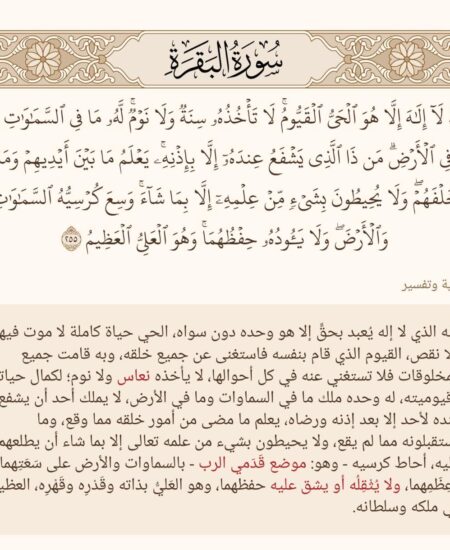 سُورَةُ البَقَرَةِ
لَآ إِلَٰهَ إِلَّا هُوَ ٱلْحَىُّ ٱلْقَيُّومُ ۚ لَا تَأْخُذُهُۥ سِنَةٌ وَلَا نَوْمٌ ۚ لَّهُۥ مَا فِى ٱلسَّمَٰوَٰتِ
فِى ٱلْأَرْضِ ۗ مَن ذَا ٱلَّذِى يَشْفَعُ عِندَهُۥٓ إِلَّا بِإِذْنِهِۦ ۚ يَعْلَمُ مَا بَيْنَ أَيْدِيهِمْ وَمَا
خَلْفَهُمْ ۖ وَلَا يُحِيطُونَ بِشَىْءٍ مِّنْ عِلْمِهِۦٓ إِلَّا بِمَا شَآءَ ۚ وَسِعَ كُرْسِيُّهُ ٱلسَّمَٰوَٰتِ
وَٱلْأَرْضَ ۖ وَلَا يَـُٔودُهُۥ حِفْظُهُمَا ۚ وَهُوَ ٱلْعَلِىُّ ٱلْعَظِيمُ ٢٥٥
ية وتفسير
ـه الذي لا إله يُعبد بحقٍّ إلا هو وحده دون سواه، الحي حياة كاملة لا موت فيها
لا نقص، القيوم الذي قام بنفسه فاستغنى عن جميع خلقه، وبه قامت جميع
مخلوقات فلا تستغني عنه في كل أحوالها، لا يأخذه نعاس ولا نوم؛ لكمال حياته
قيوميته، له وحده ملك ما في السماوات وما في الأرض، لا يملك أحد أن يشفع
نده لأحد إلا بعد إذنه ورضاه، يعلم ما مضى من أمور خلقه مما وقع، وما
ستقبلونه مما لم يقع، ولا يحيطون بشيء من علمه تعالى إلا بما شاء أن يطلعهم
ليه، أحاط كرسيه - وهو: موضع قَدَمي الرب - بالسماوات والأرض على سَعَتِهما
عِظَمِهما، ولا يُثْقِلُه أو يشق عليه حفظهما، وهو العَليُّ بذاته وقَدَره وقَهْره، العظيم
ي ملكه وسلطانه.